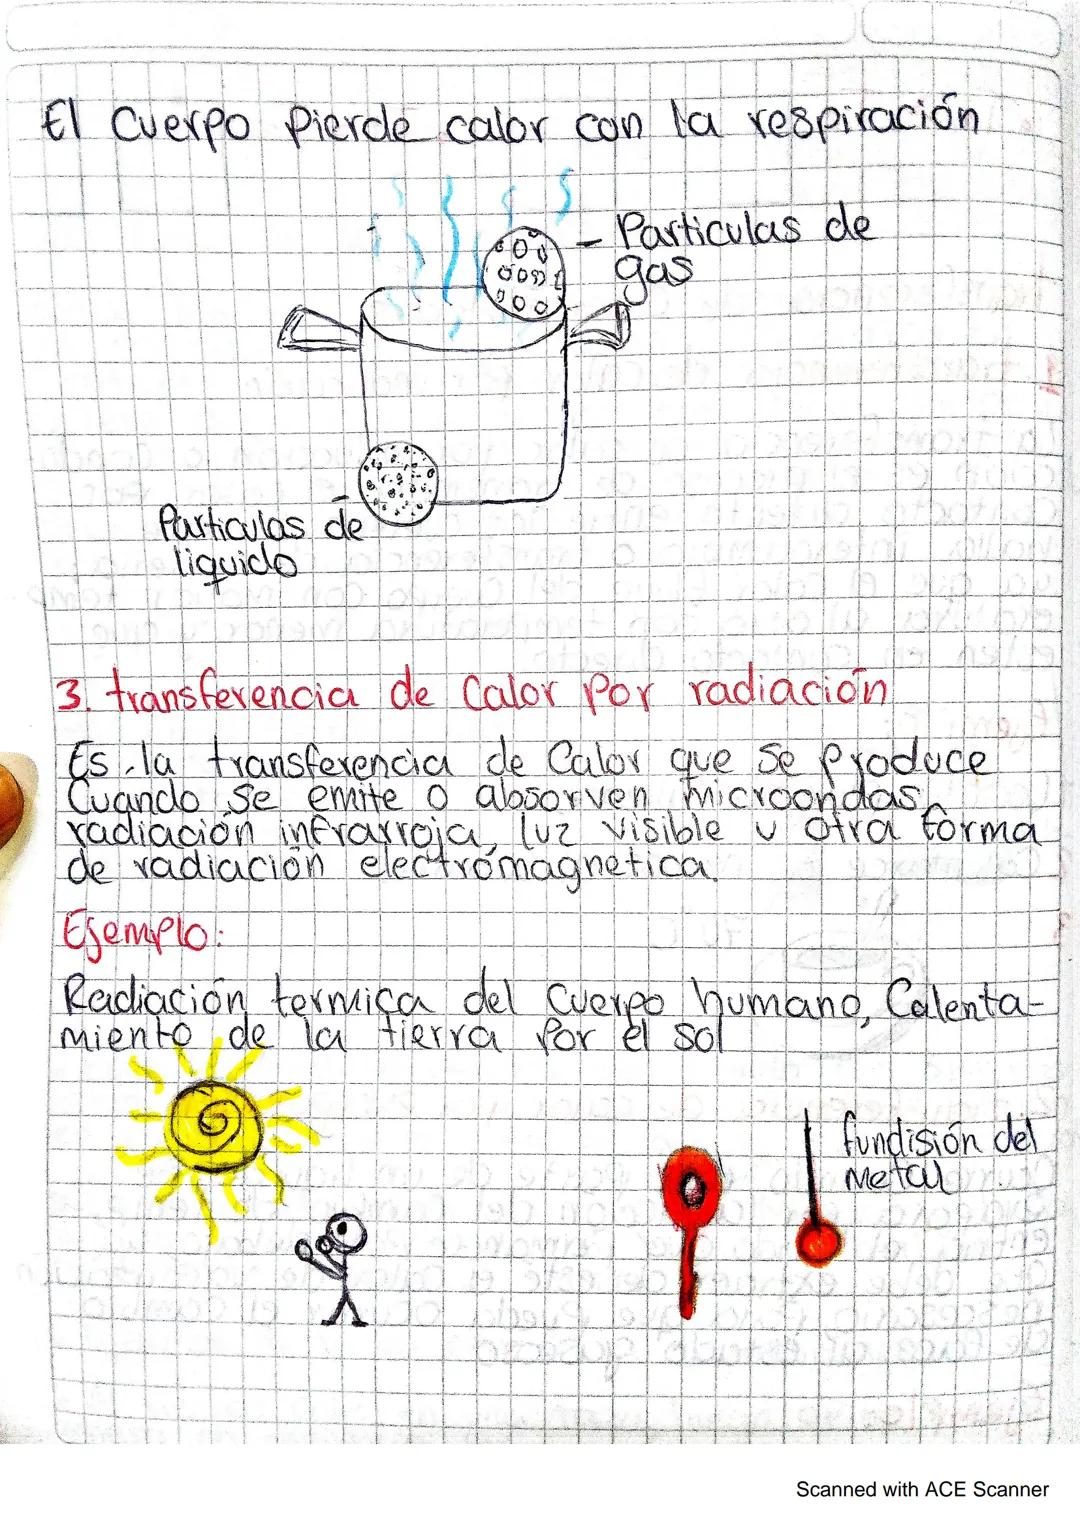 El Cuerpo Pierde calor con la respiración
- Particulas de
gas
Particulas de
liquido
3. transferencia de Calor Por radiación
Es la transferencia de Calor que se Produce
Cuando se emite o absorven microondas,
radiación infrarroja, luz visible u otra forma
de radiación electromagnetica.
Ejemplo:
Radiación termica del Cuerpo humano, Calenta-
miento de la tierra Por el sol
fundisión del
Metal
Scanned with ACE Scanner